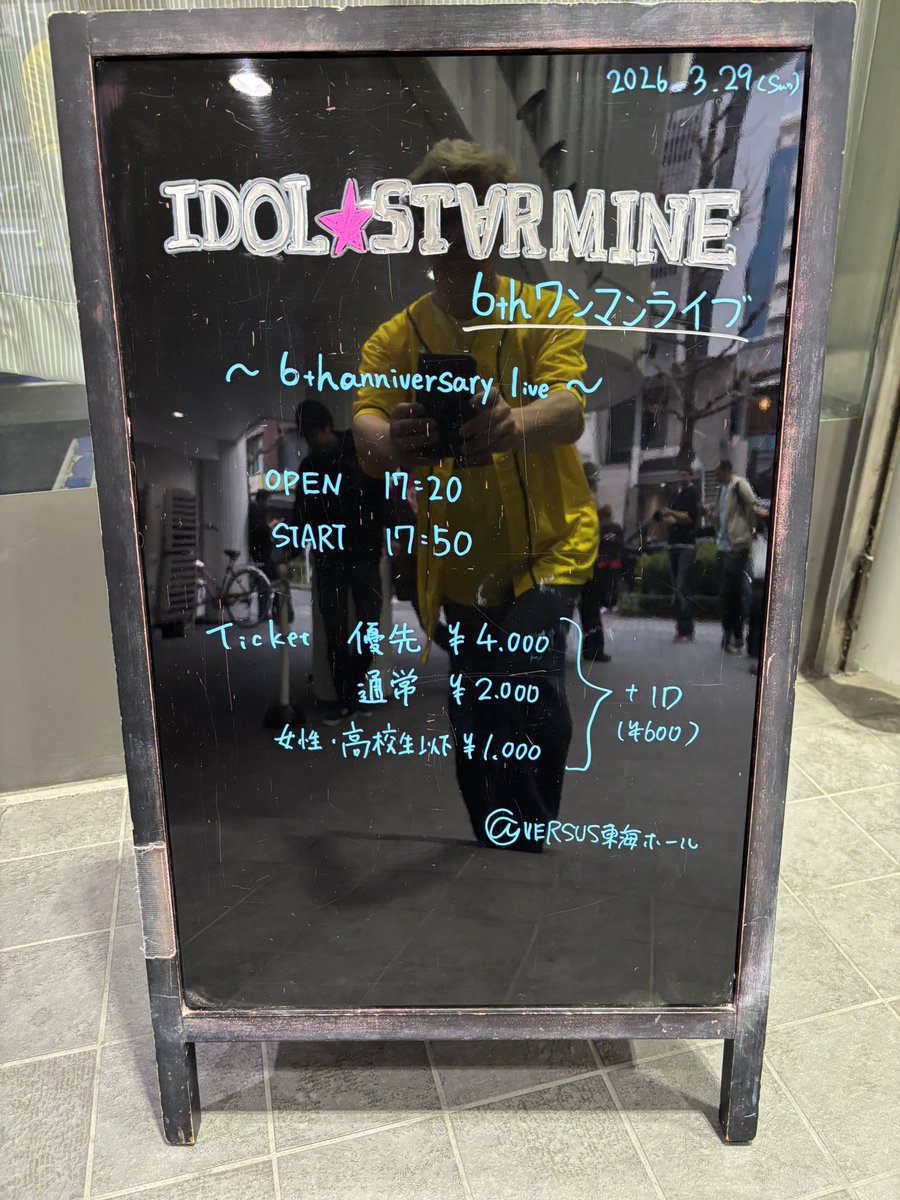 2026.3.29(Sun)
IDOL★STARMINE
6thワンマンライブ
～ 6thanniversary live ～
OPEN 17:20
START 17:50
Ticket 優先 ¥4.000
通常 ¥2.000
女性・高校生以下 ¥1.000
+1D
(¥600)
@VERSUS東海ホール